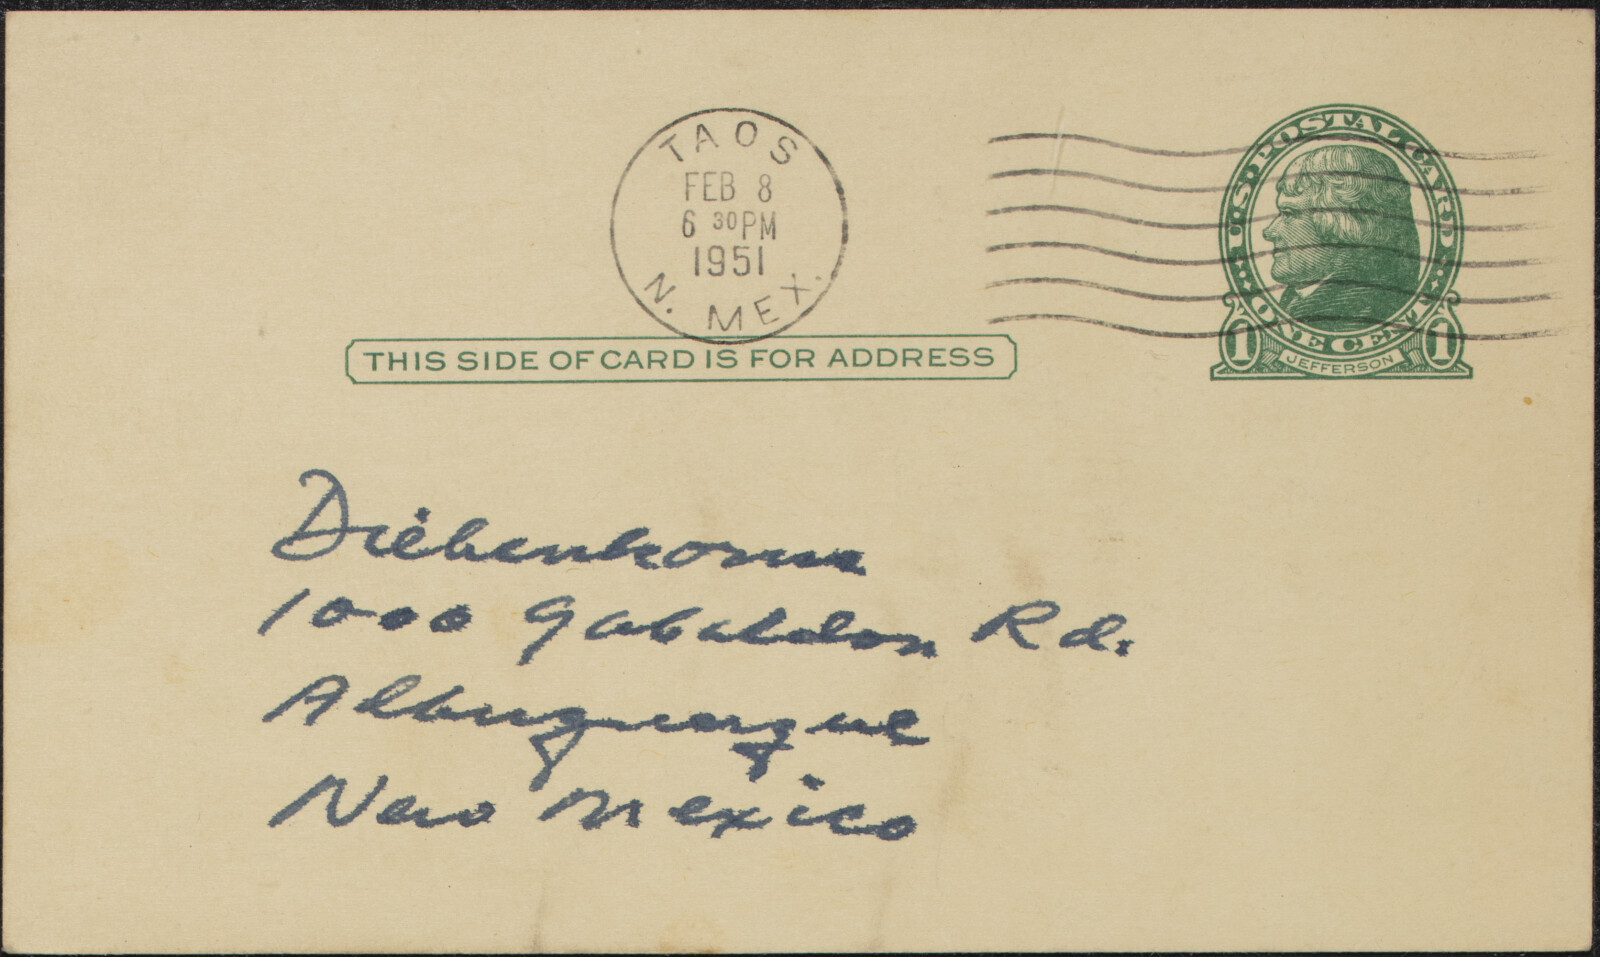 TAOS
FEB 8
6 30 PM
1951
N. MEX.
U.S. POSTAL CARD
ONE CENT
1 JEFFERSON 1
THIS SIDE OF CARD IS FOR ADDRESS
Diebenkorn
1000 Gabaldon Rd.
Albuquerque
New Mexico